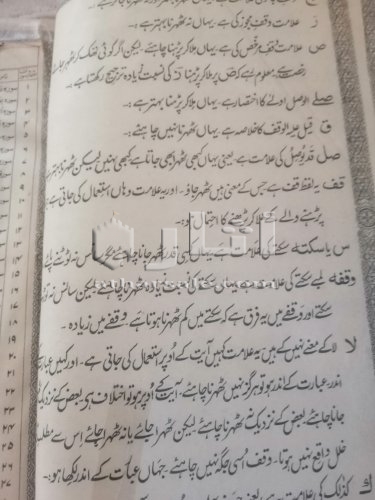 ز علامت وقف مجوز کی ہے۔ یہاں نہ ٹھہرنا بہتر ہے۔
ص علامت وقف مرخص کی ہے۔ یہاں ملا کر پڑھنا چاہئے۔ لیکن اگر کوئی تھک کر ٹھہر جائے
رخصت ہے۔ معلوم رہے کہ ص پر ملا کر پڑھنا ز کی نسبت زیادہ ترجیح رکھتا ہے۔
صلے الوصل اولٰے کا اختصار ہے۔ یہاں ملا کر پڑھنا بہتر ہے۔
ق قیل علیہ الوقف کا خلاصہ ہے۔ یہاں ٹھہرنا نہیں چاہئے۔
صل قد یوصل کی علامت ہے۔ یعنی یہاں کبھی ٹھہرا بھی جاتا ہے کبھی نہیں۔ لیکن ٹھہرنا بہتر
قف یہ لفظ قف ہے جس کے معنی ہیں ٹھہر جاؤ۔ اور یہ علامت وہاں استعمال کی جاتی ہے
پڑھنے والے کے ملا کر پڑھنے کا احتمال ہو۔
س یا سکتہ سکتے کی علامت ہے۔ یہاں کسی قدر ٹھہر جانا چاہئے مگر سانس نہ ٹوٹنے پائے
وقفہ لمبے سکتے کی علامت ہے۔ یہاں سکتے کی نسبت زیادہ ٹھہرنا چاہئے۔ لیکن سانس نہ
سکتے اور وقفے میں یہ فرق ہے کہ سکتے میں کم ٹھہرنا ہوتا ہے وقفے میں زیادہ۔
لا لا کے معنے نہیں کے ہیں۔ یہ علامت کہیں آیت کے اوپر استعمال کی جاتی ہے۔ اور کہیں عبارت
اندر۔ عبارت کے اندر ہو تو ہرگز نہیں ٹھہرنا چاہئے۔ آیت کے اوپر ہو تو اختلاف ہے۔ بعض کے نزدیک
جانا چاہئے بعض کے نزدیک نہ ٹھہرنا چاہئے لیکن ٹھہرا جائے یا نہ ٹھہرا جائے اس سے مطلب
خلل واقع نہیں ہوتا۔ وقف اسی جگہ نہیں چاہئے۔ جہاں عبارت کے اندر لکھا ہو۔
ك کذٰلک کی علامت ہے